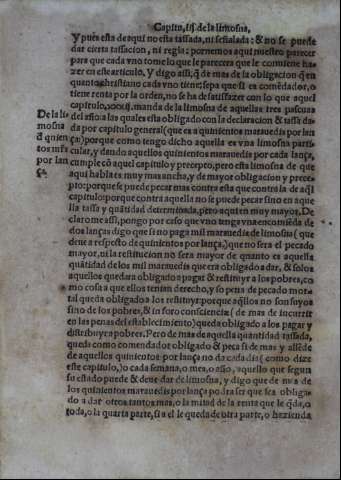 Capito, iij de la limosna,
Y pues esta de aqui no esta tassada, ni señalada: & no se puede
dar cierta tassacion, ni regla: pornemos aqui nuestro parecer
para que cada vno tome lo que le pareçera que le conuiene ha-
zer en este articulo. Y digo assi; q̃ de mas de la obligacion q̃ en
quanto christiano cada vno tiene; sepa que si es comēdador, o
tiene renta por la orden, no se ha de satisfazer con lo que aquel
capitulo, xxxij. manda de la limosna de aquellas tres pascuas
del año a las quales esta obligado con la declaracion & tassa da-
da por capitulo general (que es a quinientos marauedis por lan
ça) porque como tengo dicho aquella es vna limosna parti-
cular, y dando aquellos quinientos marauedis por cada lança,
cumple cõ aquel capitulo y precepto, pero esta limosna de que
aqui habla es muy mas ancha, y de mayor obligacion y prece-
pto: porque se puede pecar mas contra esta que contra la de aq̃l
capitulo: porque contra aquella no se puede pecar sino en aque
lla tassa y quãtidad determinada, pero aqui en muy mayor. De
claro me assi, pongo por caso que vno tenga vna encomiẽda de
dos lanças digo que si no paga mil marauedis de limosna (que
deue a respecto de quinientos por lança,) que no sera el pecado
mayor, ni la restitucion no sera mayor de quanto es aquella
quãtidad de los mil marauedis que era obligado a dar, & solos
aquellos quedara obligado a pagar & restituyr a los pobres, co
mo cosa a que ellos tenian derecho, y so pena de pecado mor-
tal queda obligado a los restituyr: porque aq̃llos no son suyos
sino de los pobres, & in foro consciencię (de mas de incurrir
en las penas del establecimiento) queda obligado a los pagar y
distribuyr a pobres. Pero de mas de aquella quantidad tassada,
queda como comendador obligado & peca si de mas y allẽde
de aquellos quinientos por lança no da cada dia (como dize
este capitulo,) o cada semana, o mes, o año, aquello que segun
su estado puede & deue dar de limosna, y digo que de mas de
los quinientos marauedis por lança podra ser que sea obliga-
do a dar otros tantos mas, o la mitad de la renta que le q̃da, o
toda, o la quarta parte, si a el le queda de otra parte, o hazienda
De la li-
mosna
q̃ quien
por lan
ça.